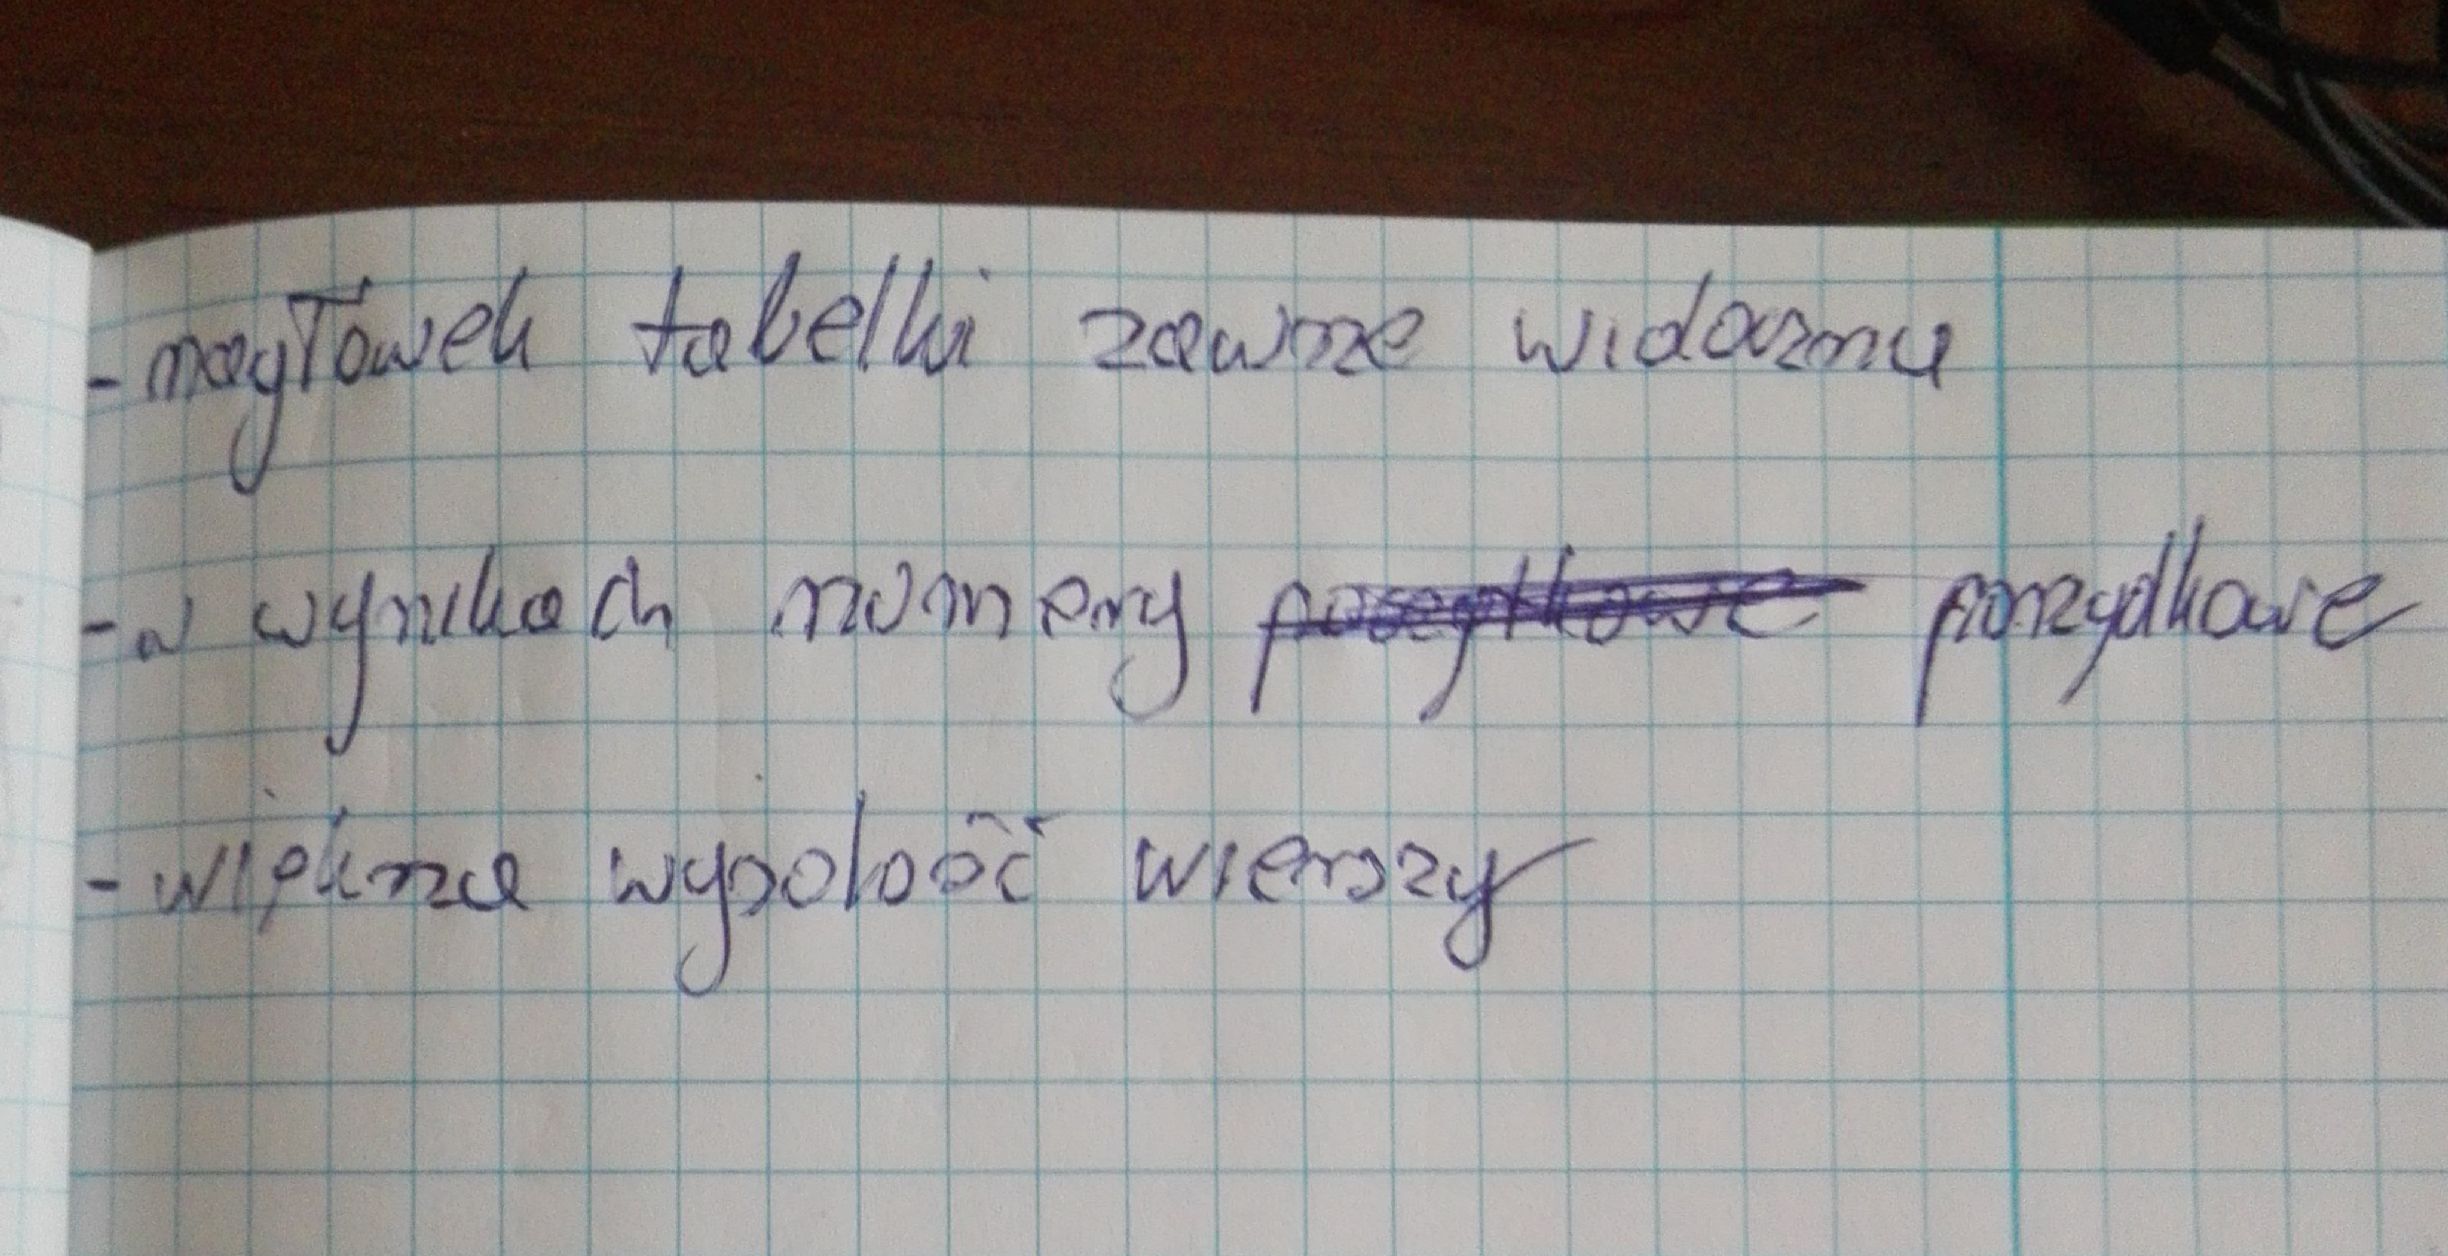 - nagłówek tabelki zawsze widoczny
- w wynikach numery porządkowe
- większa wysokość wierszy